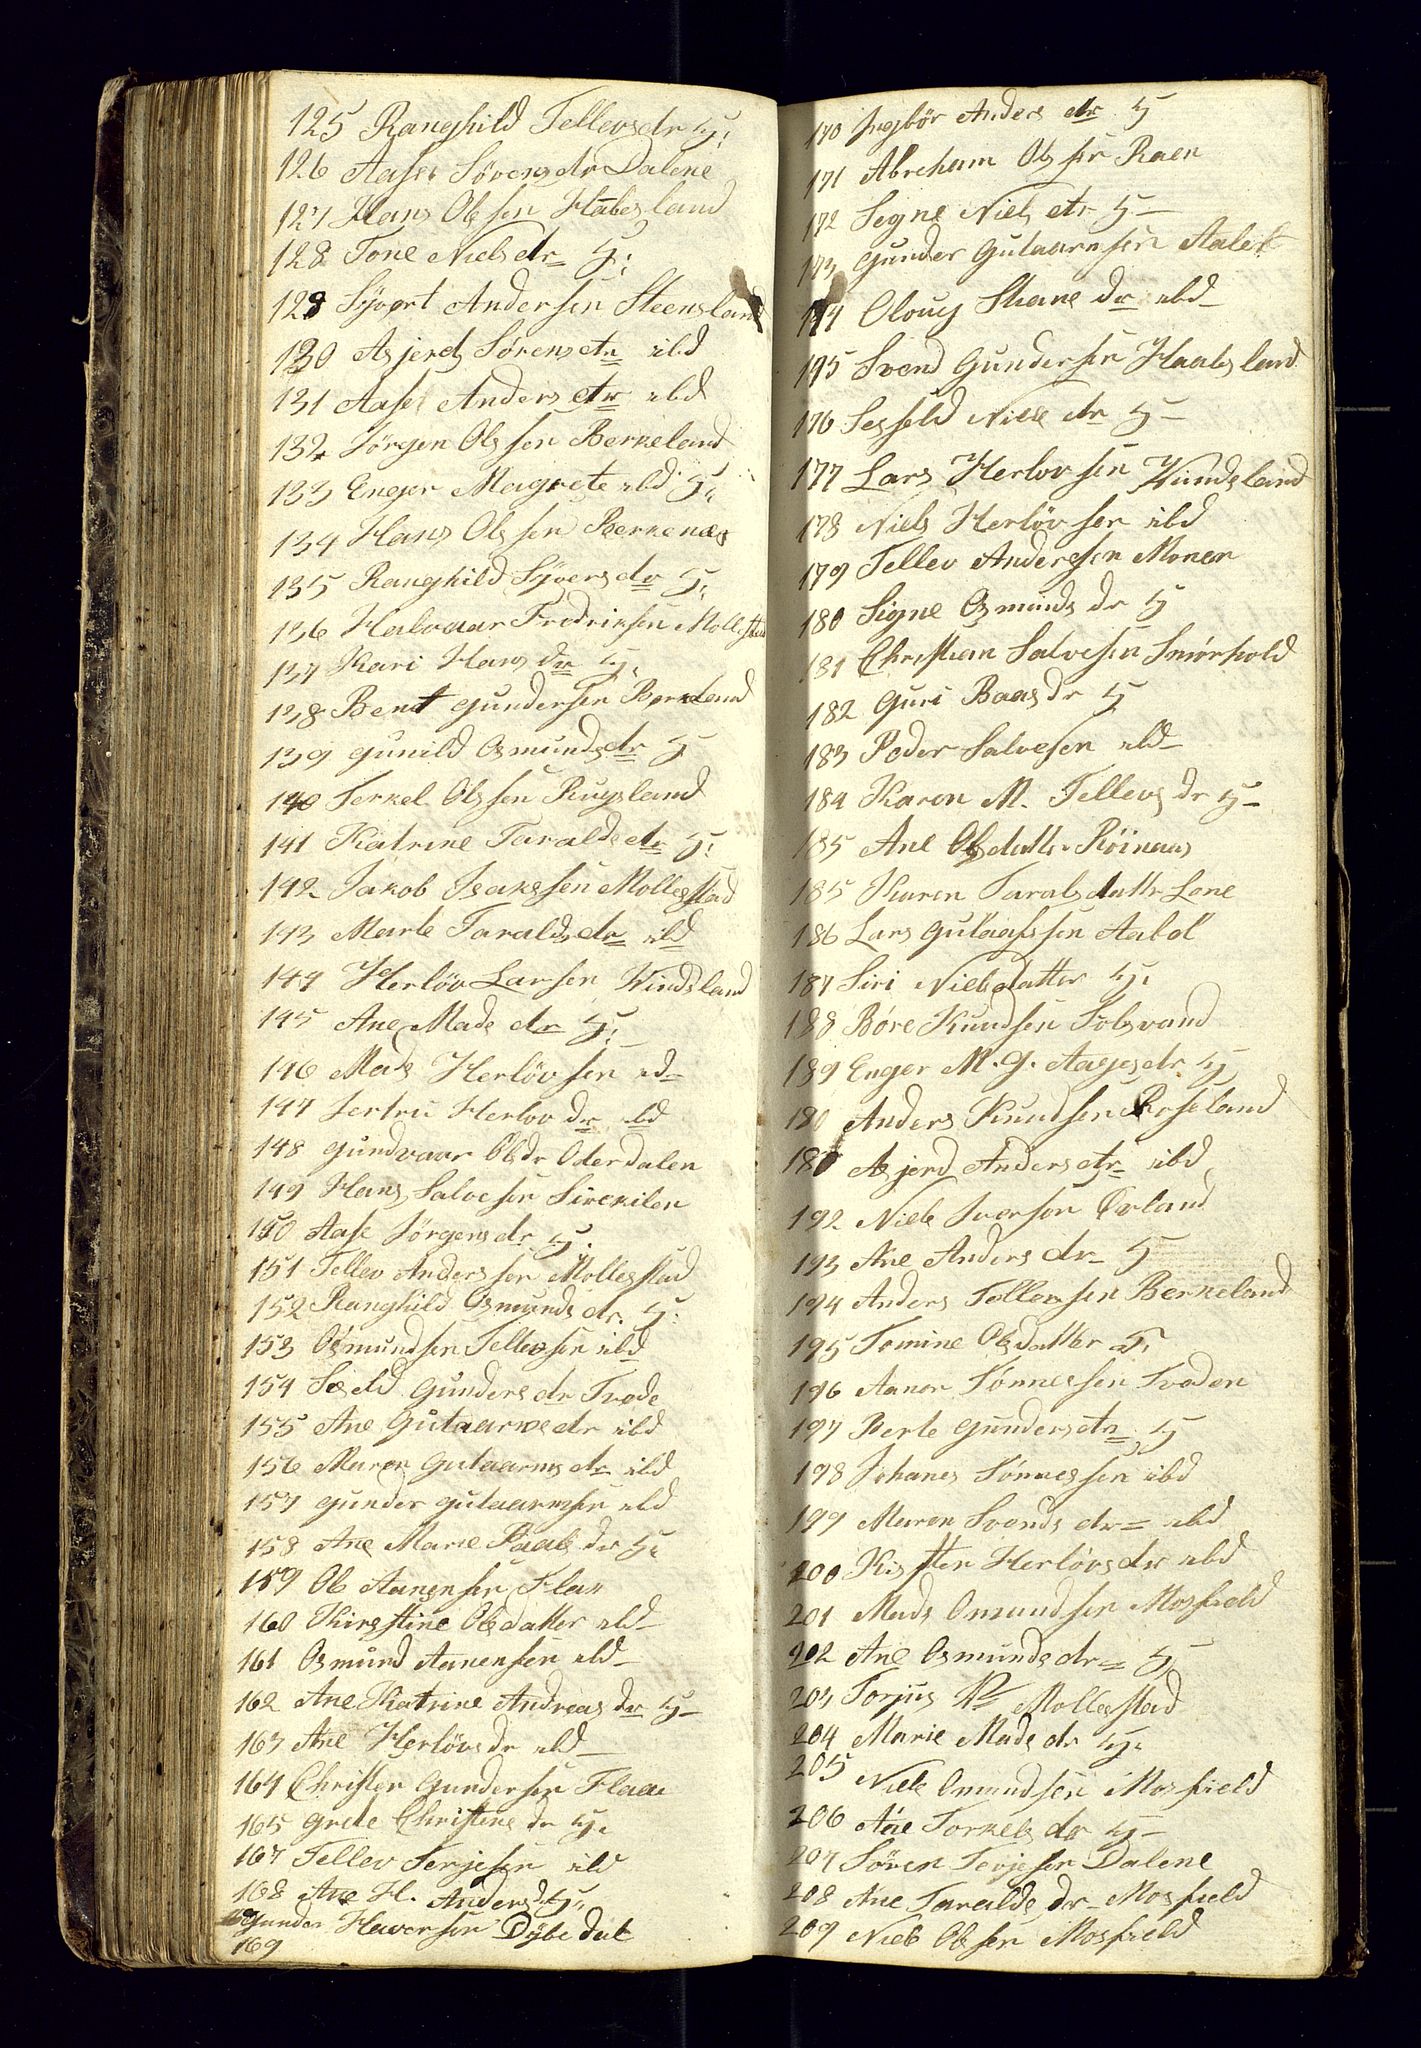 125 Ranghild Tellevsdr H:
126 Aase Sørensdr Dalene
127 Hans Olssen Habesland
128 Tone Nielsdr H:
129 Syvert Andersen Steensland
130 Asjerd Sørensdr ibd
131 Aase Andersdr ibd
132 Jørgen Olssen Berkeland
133 Enger Magrete ibd H:
134 Hans Olssen Berkenæs
135 Ranghild Syversdr H:
136 Halvaar Fredriksen Mollestad
137 Kari Hansdr H:
138 Bent Gundersen Berkeland
139 Gunild Osmundsdr H
140 Terkel Olssen Rugsland
141 Katrine Taraldsdr H:
142 Jakob Isakssen Mollestad
143 Marte Taraldsdr ibd
144 Herløv Larsen Vindsland
145 Ane Madsdr H:
146 Mads Herløvsen ibd
147 Jertru Herlovdr ibd
148 Gundvaar Olsdr Oderdalen
149 Hans Salvesen Sirekilen
150 Aase Jørgensdr H.
151 Tellev Anderssen Mollestad
152 Ranghild Osmundsdr. H:
153 Osmundsen Tellevsen ibd
154 Gundersdr Tvede
155 Ane Gutaarmsdr ibd
156 Maren Gutaarmsdr ibd
157 Gunder Gutaarmsen ibd
158 Ane Marie dr H:
159 Ole Aanensen Flaa
160 Kirestine Olsdatter ibd
161 Osmund Aanensen ibd
162 Ane Katrine Andreasdr H
163 Ane Herløvsdr ibd
164 Christen Gundersen Flaa
165 Grete Christensdr H.
167 Tellev Terjesen ibd
168 Ane H. Andersdr H.
Gunder Haversen Dybedal
169
170 Ingbør Andersdr H
171 Abreham Olssen Raen
172 Segne Nielsdr H
173 Gunder Gutaarmsen Aabel
174 Oloug Stianedr ibd
195 Svend Gundersen Haabesland
176 Segfeld Nielsdr H
177 Lars Herlovsen Vindsland
178 Niels Herløvsen ibd
179 Tellev Andersen Moner
180 Signe Osmundsdr H
181 Christian Salvesen Smørhold
182 Guri Baasdr H
183 Peder Salvesen ibd
184 Karen M. Tellevsdr H
185 Ane Olsdatter Røinaas
185 Karen Taralsdattr Lone
186 Lars Aabel
187 Siri Nielsdatter H.
188 Børe Knudsen Solsvand
189 Enger M. G. Aagesdr. H
180 Anders Knudsen Roseland
180 Asjerd Andersdr ibd
192 Niels Iversen Øvland
193 Ane Andersdr H
194 Anders Tellevsen Berkeland
195 Tomine Olsdatter H.
196 Aanon Tønnessen Tveden
197 Berte Gundersdr H
198 Johanes Tønnessen ibd
199 Maren Svendsdr ibd
200 Kisten Herløvsdr ibd
201 Mads Omundsen Mosfield
202 Ane Osmundsdr H.
203 Torjus Mollestad
204 Marie Madsdr H.
205 Niels Omundsen Mosfield
206 Ane Torkelsdr H
207 Søren Terjesen Dalene
208 Ane Taraldsdr Mosfield
209 Niels Olsen Mosfield